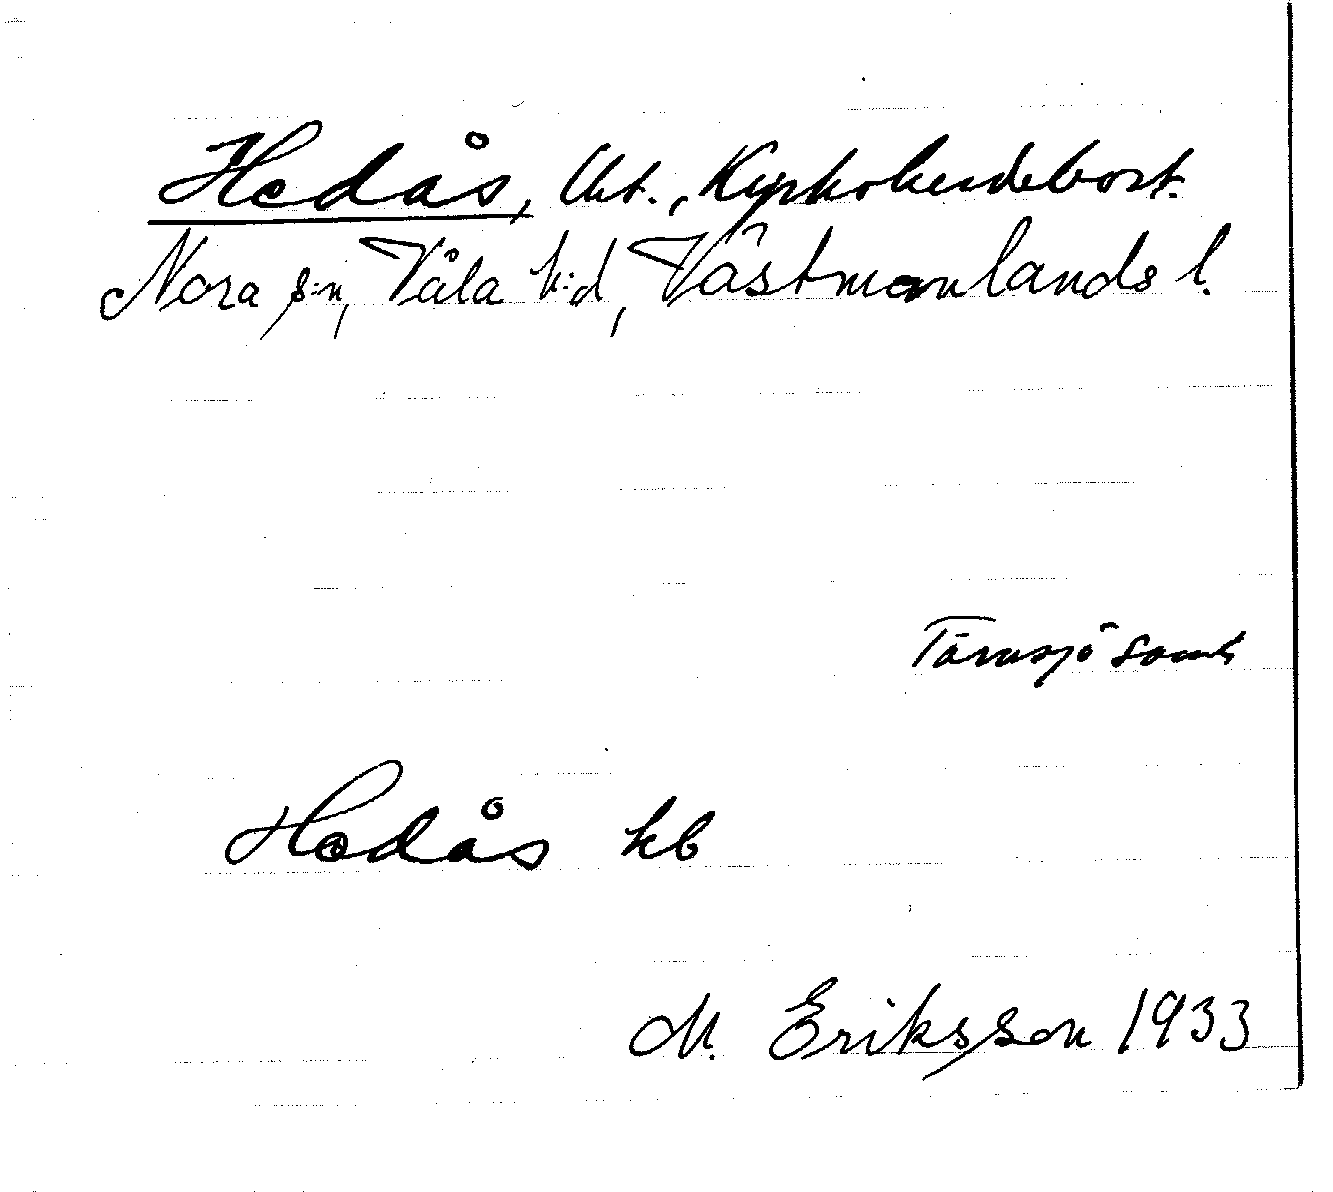 Hedås, Ukt., Kyrkoherdebost.
Nora s:n, Våla h:d, Västmanlands l.
Tärnsjö samh
Hedås kb
M. Eriksson 1933